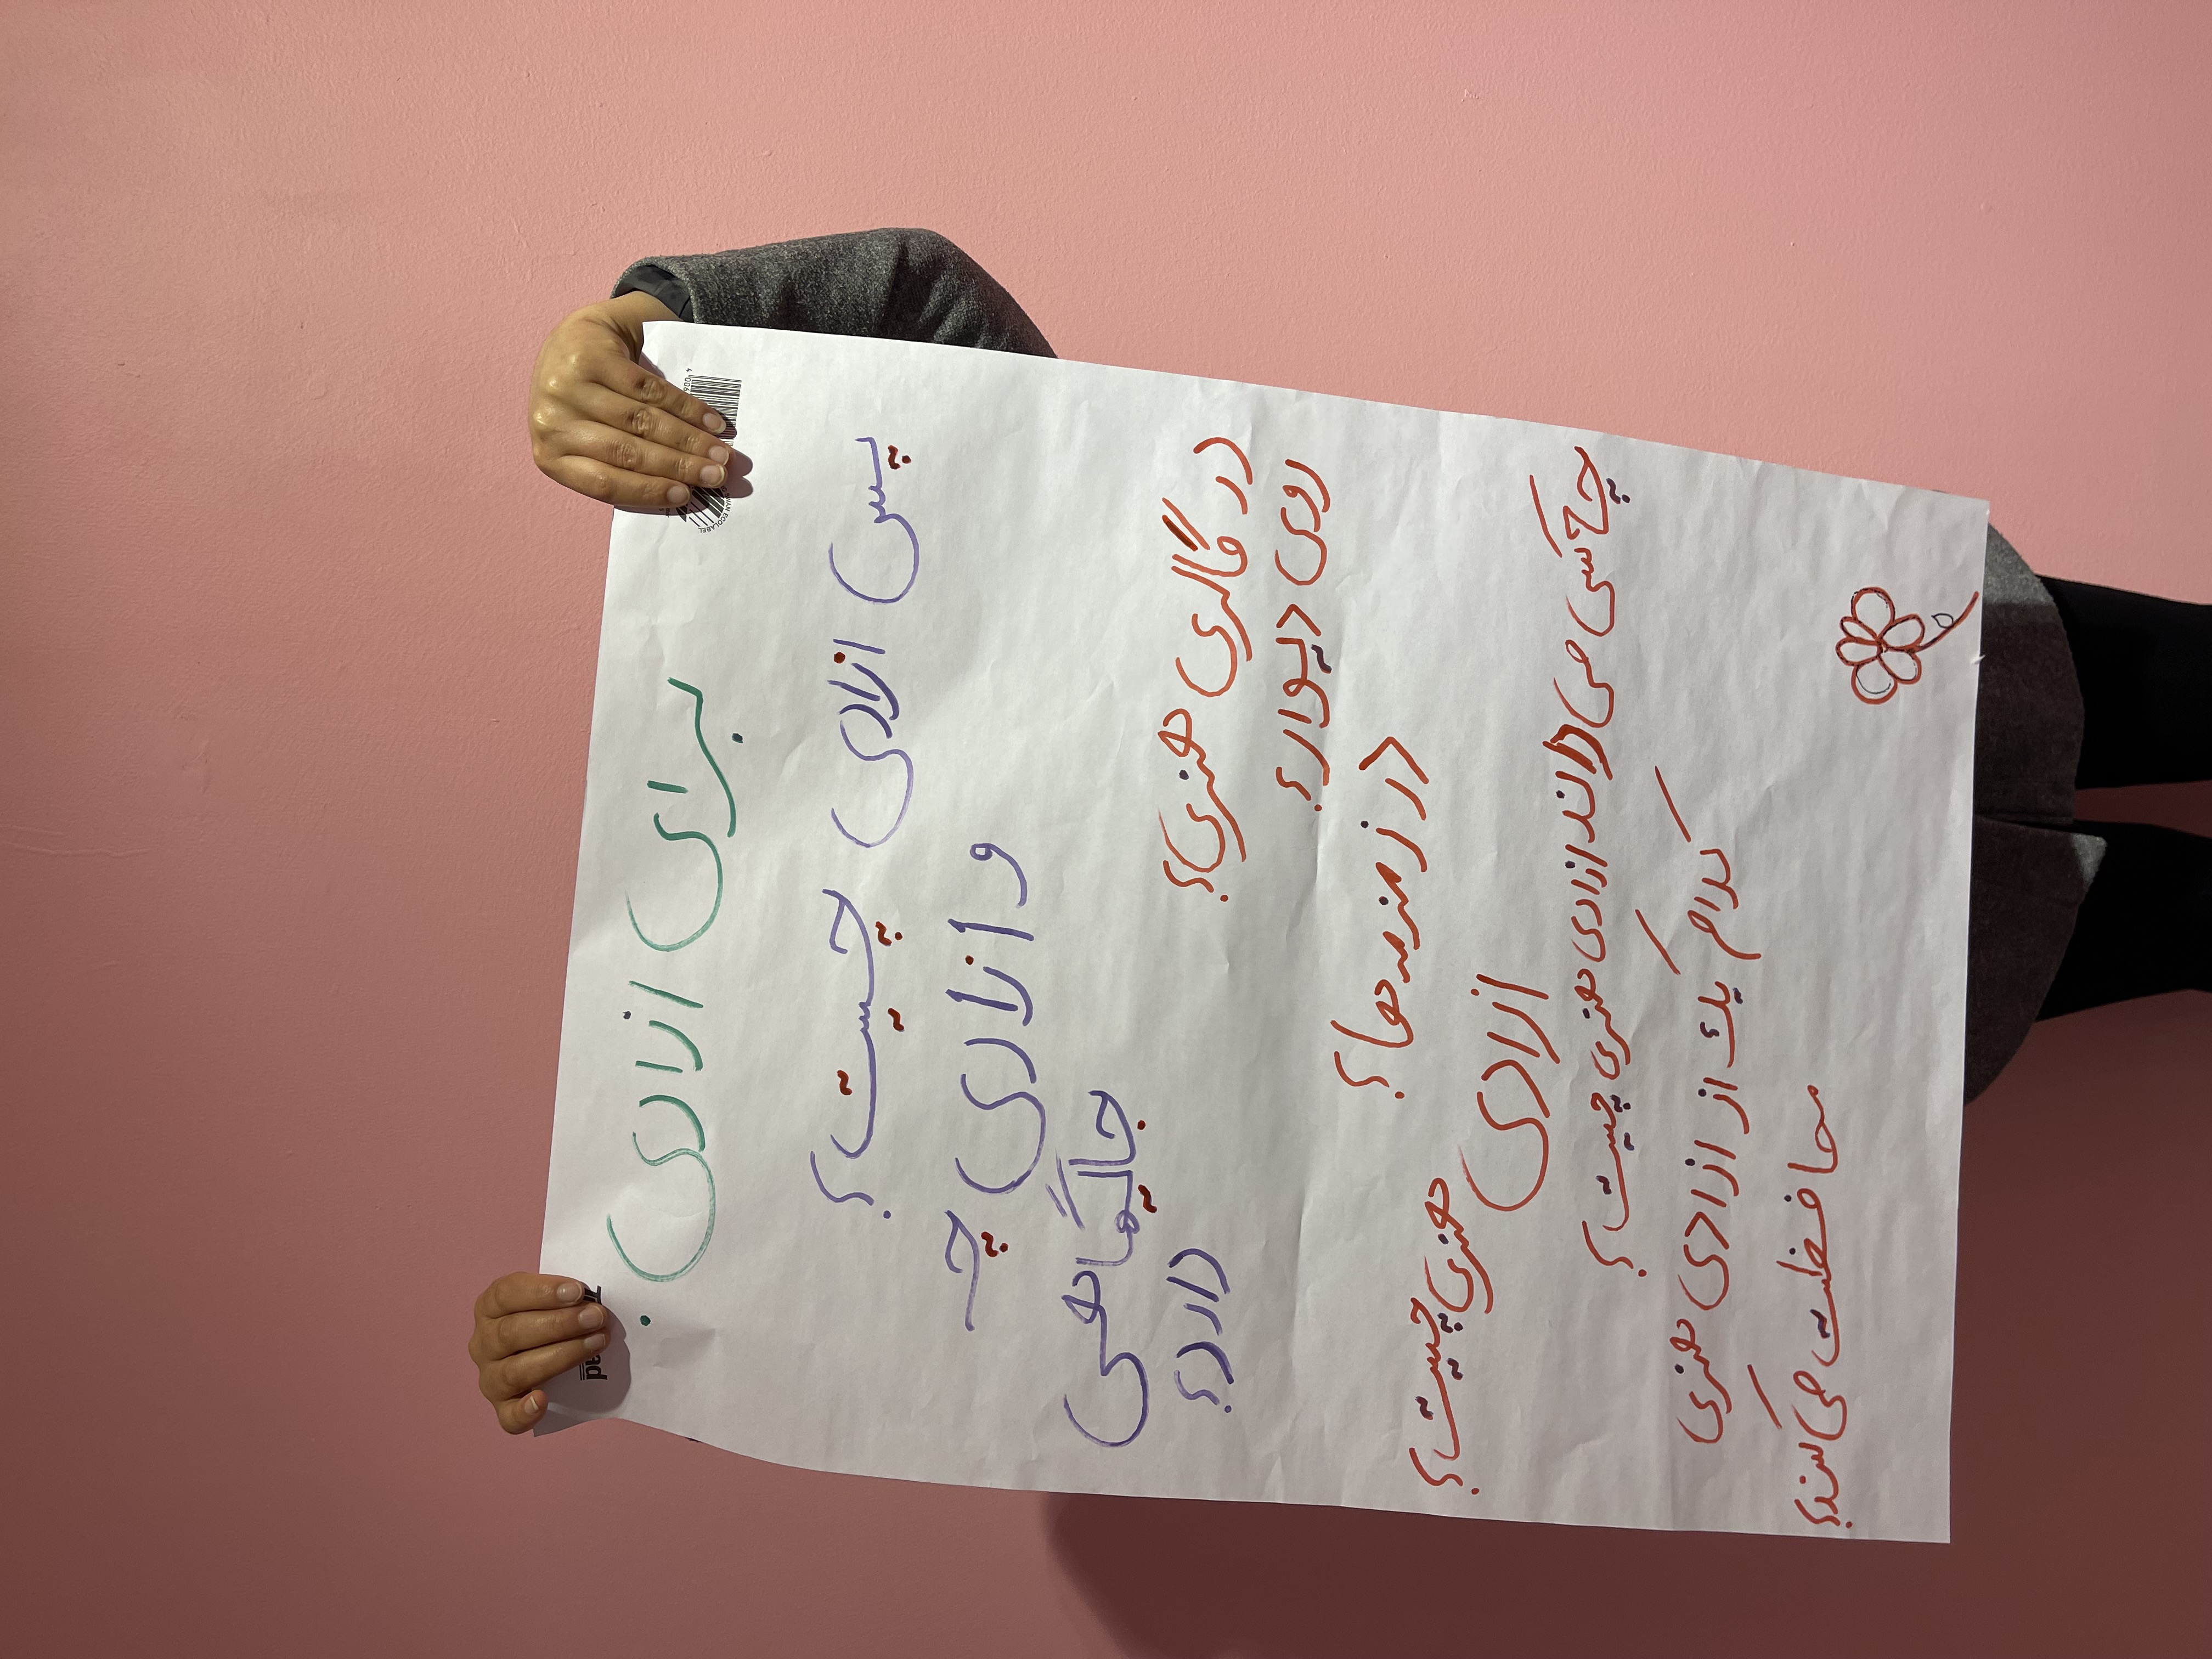 برای ازادی.
پس ازادی چیست؟
و ازادی چه
جایگاهی
دارد؟
در گالری هنری؟
روی دیوار؟
در زمزمه ها؟
ازادی
هنری چیست؟
چه کسی می داند ازادی هنری چیست؟
کدام یک از ازادی هنری
محافظت می کند؟